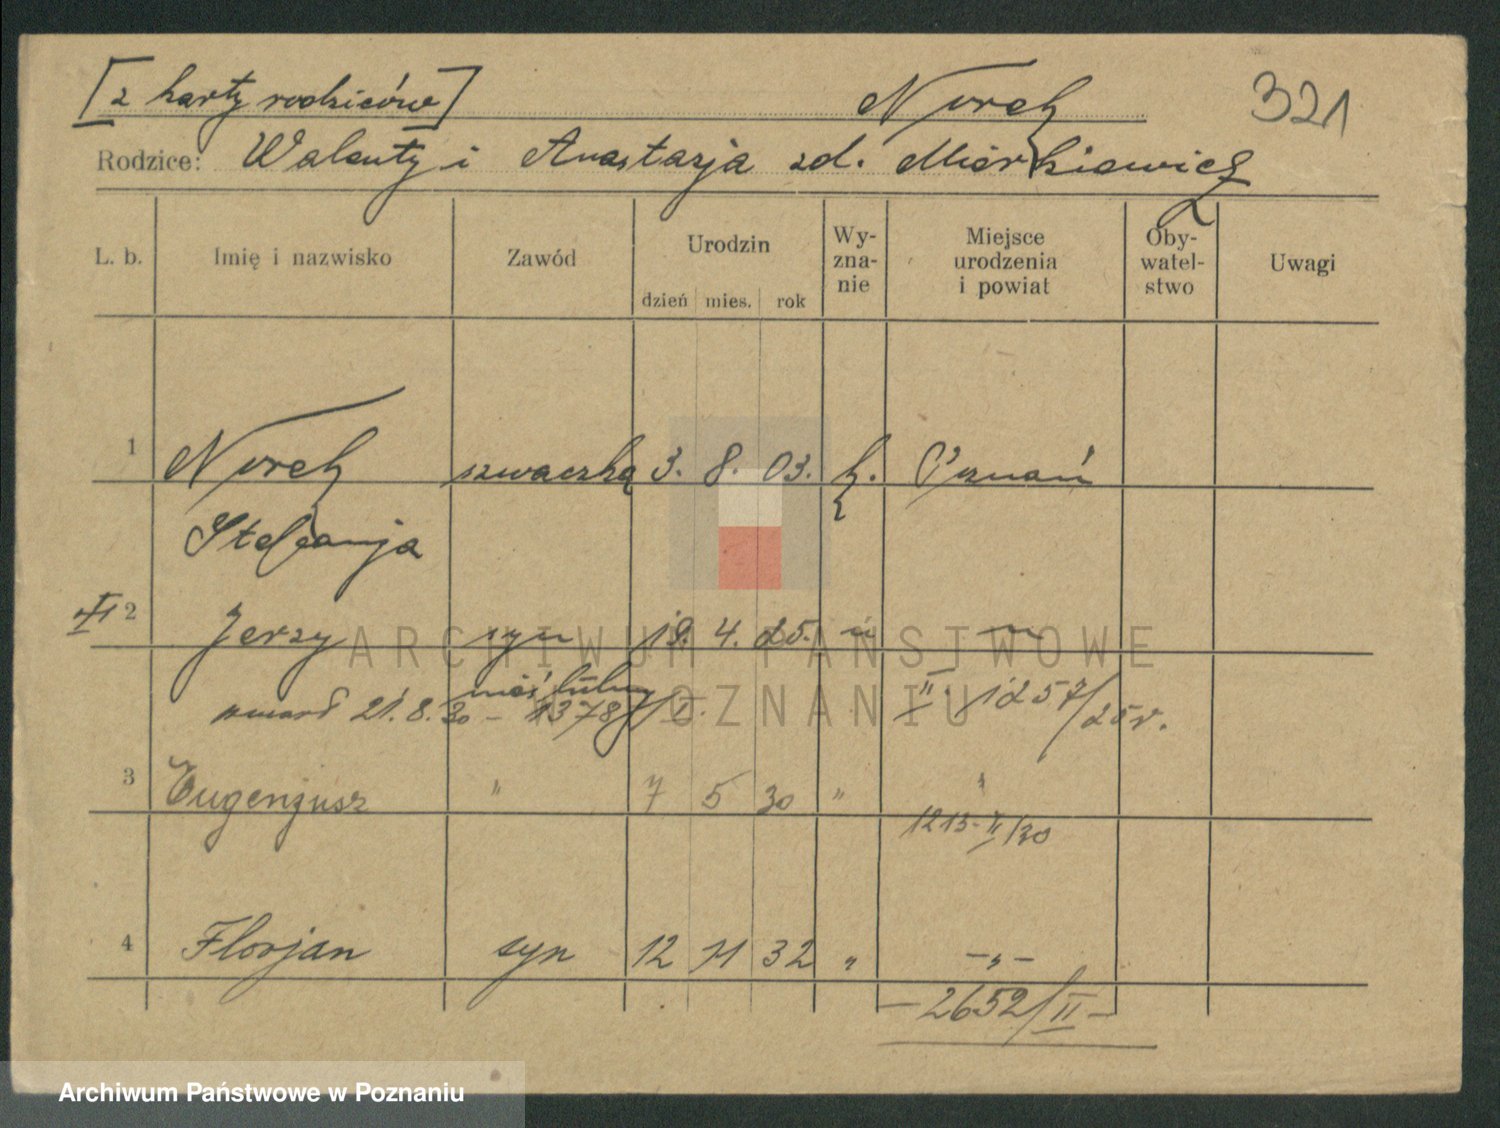 [z karty rodziców] Noreh 321
Rodzice: Walenty i Anastazja zd. Miérkiewicz
L. b. Imię i nazwisko Zawód Urodzin dzień mies. rok Wy-zna-nie Miejsce urodzenia i powiat Oby-watel-stwo Uwagi
1 szwaczka 3. 8. 03. k. Poznań
Stefanja
2 Jerzy syn 19. 4. 25. " "
zmarł 21.8.30 - 1378/II. II. 1257/25r.
3 Eugenjusz " 7 5 30 " "
1213-II/30
4 Florjan syn 12 11 32 " -"-
-2652/II-
ARCHIWUM PAŃSTWOWE
W POZNANIU
Archiwum Państwowe w Poznaniu